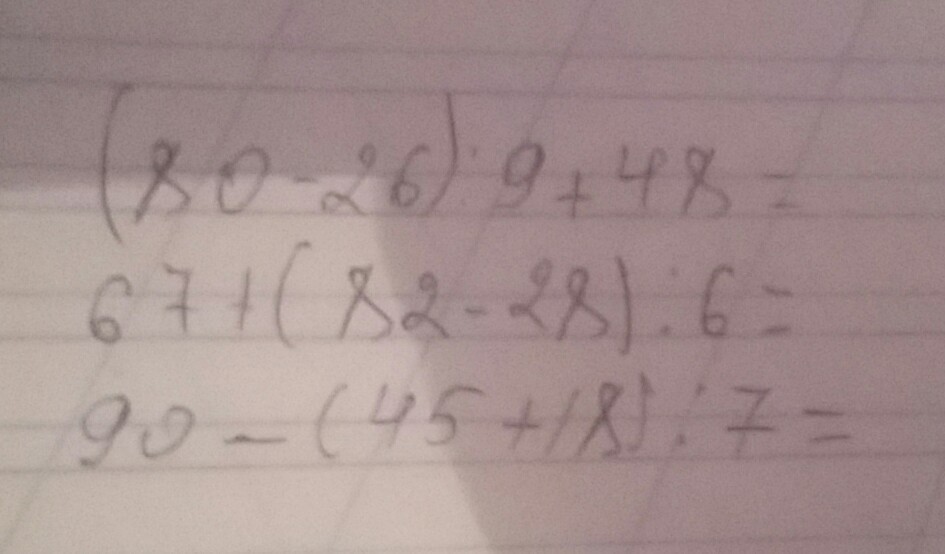 (80-26):9+48=
67+(82-28):6=
90-(45+18):7=